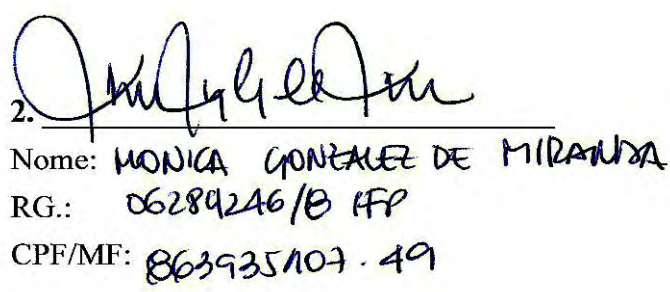 2.
Nome: MONICA GONZALEZ DE MIRANDA
RG.: 06289246/B IFP
CPF/MF: 863935107.49